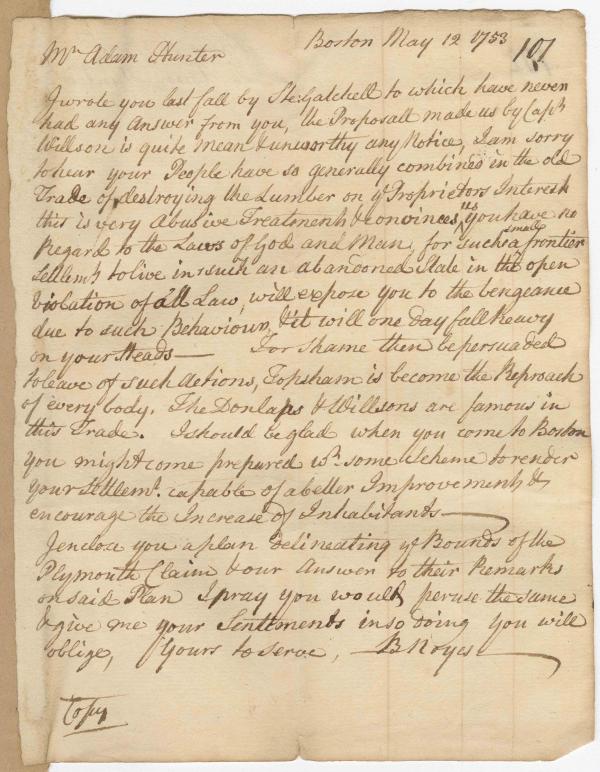 Boston May 12 1753
107
Mr. Adam Hunter
I wrote you last fall by Ste: Gatchell to which have never
had any Answer from you, the Proposall made us by Capt.
Willson is quite mean & unworthy any Notice, I am sorry
to hear your People have so generally combined in the old
Trade of destroying the Lumber on ye Proprietors Interest
this is very Abusive Treatment & convinces us you have no
Regard to the Laws of God and Man, for such a small frontier
Settlemt. to live in such an abandoned State in the open
Violation of all Law, will expose you to the vengeance
due to such Behaviour, & it will one day fall heavy
on your Heads — For shame then be persuaded
to leave of such Actions, Topsham is become the Reproach
of every body. The Donlaps & Willsons are famous in
this Trade. I should be glad when you come to Boston
you might come prepared wh. some Scheme to render
your Settlemt. capable of a better Improvement, &
encourage the Increase of Inhabitants —
I enclose you a plan delineating ye Bounds of the
Plymouth Claim & our Answer to their Remarks
on said Plan I pray you would peruse the same
& give me your Sentiments in so doing you will
oblige, Yours to serve, B Noyes
Copy